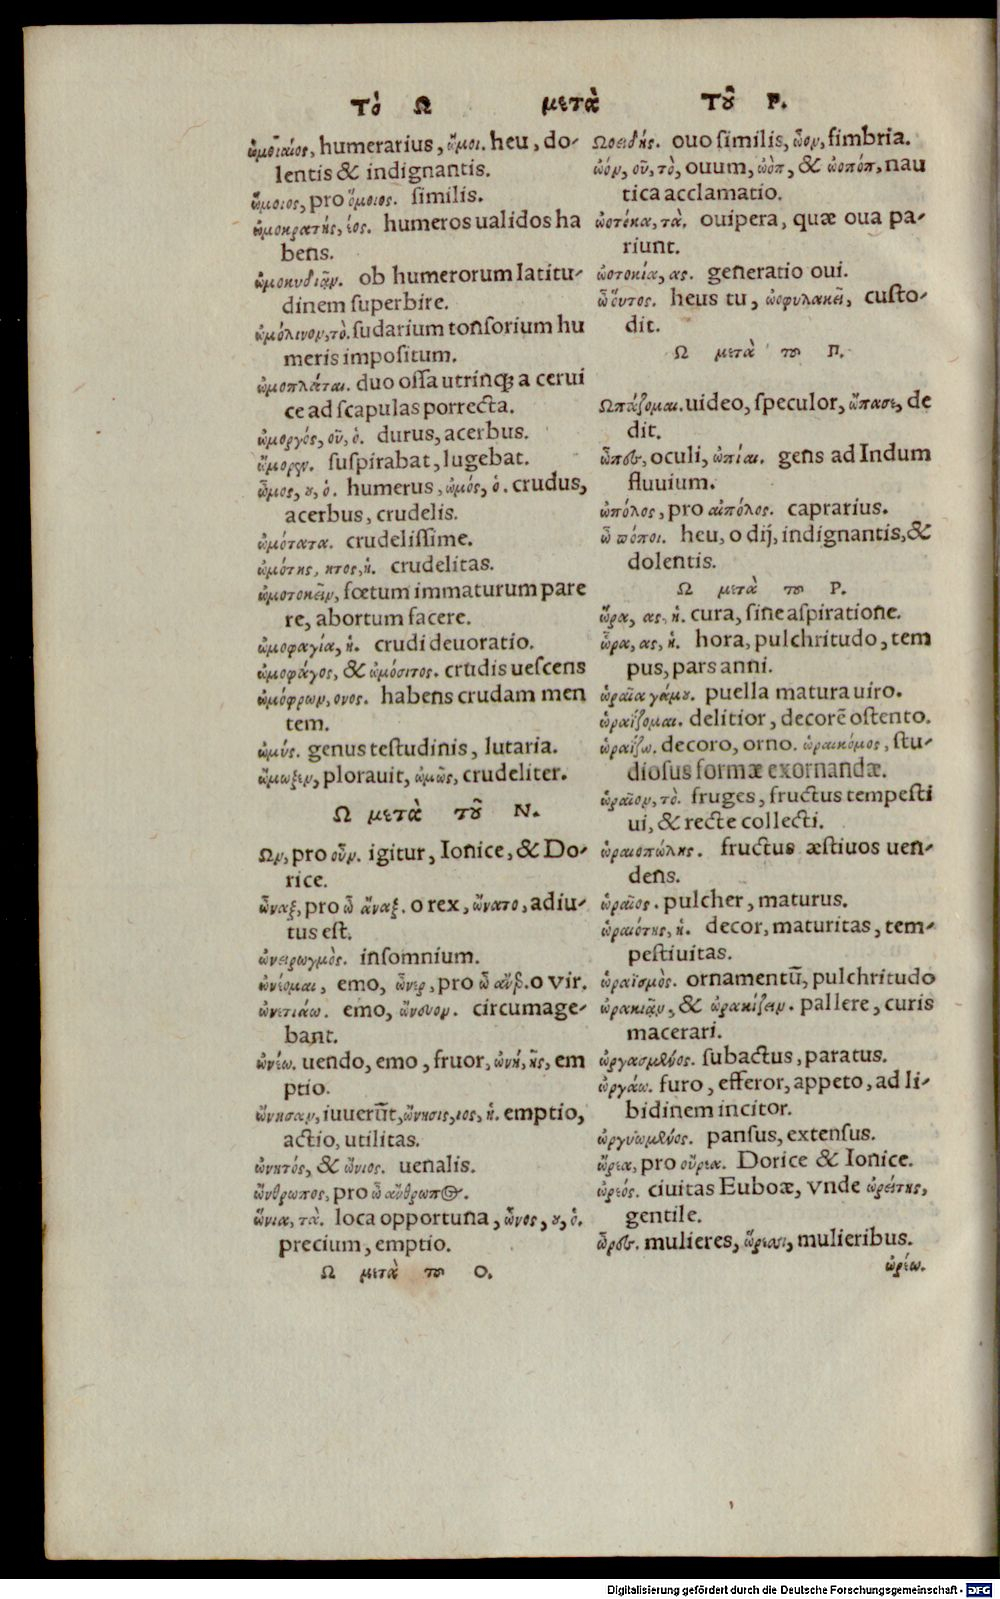 Τὸ Ω μετὰ Τοῦ Ρ.
humerarius, ὤμοι. heu, do-
lentis & indignantis.
ὤμοιος, pro ὅμοιος. similis.
ὠμοκρατής, έος. humeros ualidos ha
bens.
ὠμοκυδιᾷν. ob humerorum latitu-
dinem superbire.
ὠμόλινον, τὸ. sudarium tonsorium hu
meris impositum.
ὠμοπλάται. duo ossa utrinq; a cerui
ce ad scapulas porrecta.
ὠμοργός, οῦ, ὁ. durus, acerbus.
suspirabat, lugebat.
ὦμος, ου, ὁ. humerus, ὠμός, ὁ. crudus,
acerbus, crudelis.
ὠμότατα. crudelissime.
ὠμότης, ητος, ἡ. crudelitas.
ὠμοτοκεῖν, fœtum immaturum pare
re, abortum facere.
ὠμοφαγία, ἡ. crudi deuoratio.
ὠμοφάγος, & ὠμόσιτος. crudis uescens
ὠμόφρων, ονος. habens crudam men
tem.
ὠμύς. genus testudinis, lutaria.
ὤμωξεν, plorauit, ὠμῶς, crudeliter.
Ω μετὰ τοῦ Ν.
Ων, pro οὖν. igitur, Ionice, & Do-
rice.
ὦναξ, pro ὦ ἄναξ. o rex, ὤνατο, adiu-
tus est.
ὠνειρωγμὸς. insomnium.
ὠνέομαι, emo, ὦνερ, pro ὦ ἄνερ. o vir.
ὠνετιάω. emo, ὤνευον. circumage-
bant.
ὠνέω. uendo, emo, fruor, ὠνή, ῆς, em
ptio.
ὤνησαν, iuuerūt, ὤνησις, ιος, ἡ. emptio,
actio, utilitas.
ὠνητός, & ὤνιος. uenalis.
ὤνθρωπος, pro ὦ ἄνθρωπος.
ὤνια, τὰ. loca opportuna, ὦνος, ου, ὁ.
precium, emptio.
Ω μετὰ του Ο.
Ωοειδής. ouo similis, ὦον, fimbria.
ὠόν, οῦ, τὸ, ouum, ὠὸπ, & ὠοπόπ, nau
tica acclamatio.
ὠοτόκα, τὰ. ouipera, quæ oua pa-
riunt.
ὠοτοκία, ας. generatio oui.
ὦ οὗτος. heus tu, ὠοφυλακεῖ, custo-
dit.
Ω μετὰ του Π.
Ωπάζομαι. uideo, speculor, ὤπασε, de
dit.
ὦπες, oculi, ὠπίαι. gens ad Indum
fluuium.
ὠπόλος, pro αἰπόλος. caprarius.
ὦ πόποι. heu, o dij, indignantis, &
dolentis.
Ω μετὰ του Ρ.
ὤρα, ας, ἡ. cura, sine aspiratione.
ὥρα, ας, ἡ. hora, pulchritudo, tem
pus, pars anni.
ὡραία γάμου. puella matura uiro.
ὡραΐζομαι. delitior, decorē ostento.
ὡραΐζω. decoro, orno. ὡραικόμος, stu-
diosus formæ exornandæ.
ὡραῖον, τὸ. fruges, fructus tempesti
ui, & recte collecti.
ὡραιοπώλης. fructus æstiuos uen-
dens.
ὡραῖος. pulcher, maturus.
ὡραιότης, ἡ. decor, maturitas, tem-
pestiuitas.
ὡραϊσμὸς. ornamentū, pulchritudo
ὠρακιᾷν, & ὠρακίζειν. pallere, curis
macerari.
ὠργασμένος. subactus, paratus.
ὠργάω. furo, efferor, appeto, ad li-
bidinem incitor.
ὠργυιωμένος. pansus, extensus.
ὤρεα, pro οὔρεα. Dorice & Ionice.
ὠρεός. ciuitas Eubœæ, vnde ὠρείτης,
gentile.
ὦρες. mulieres, ὤρεσι, mulieribus.
ὠρέω.
Digitalisierung gefördert durch die Deutsche Forschungsgemeinschaft - DFG